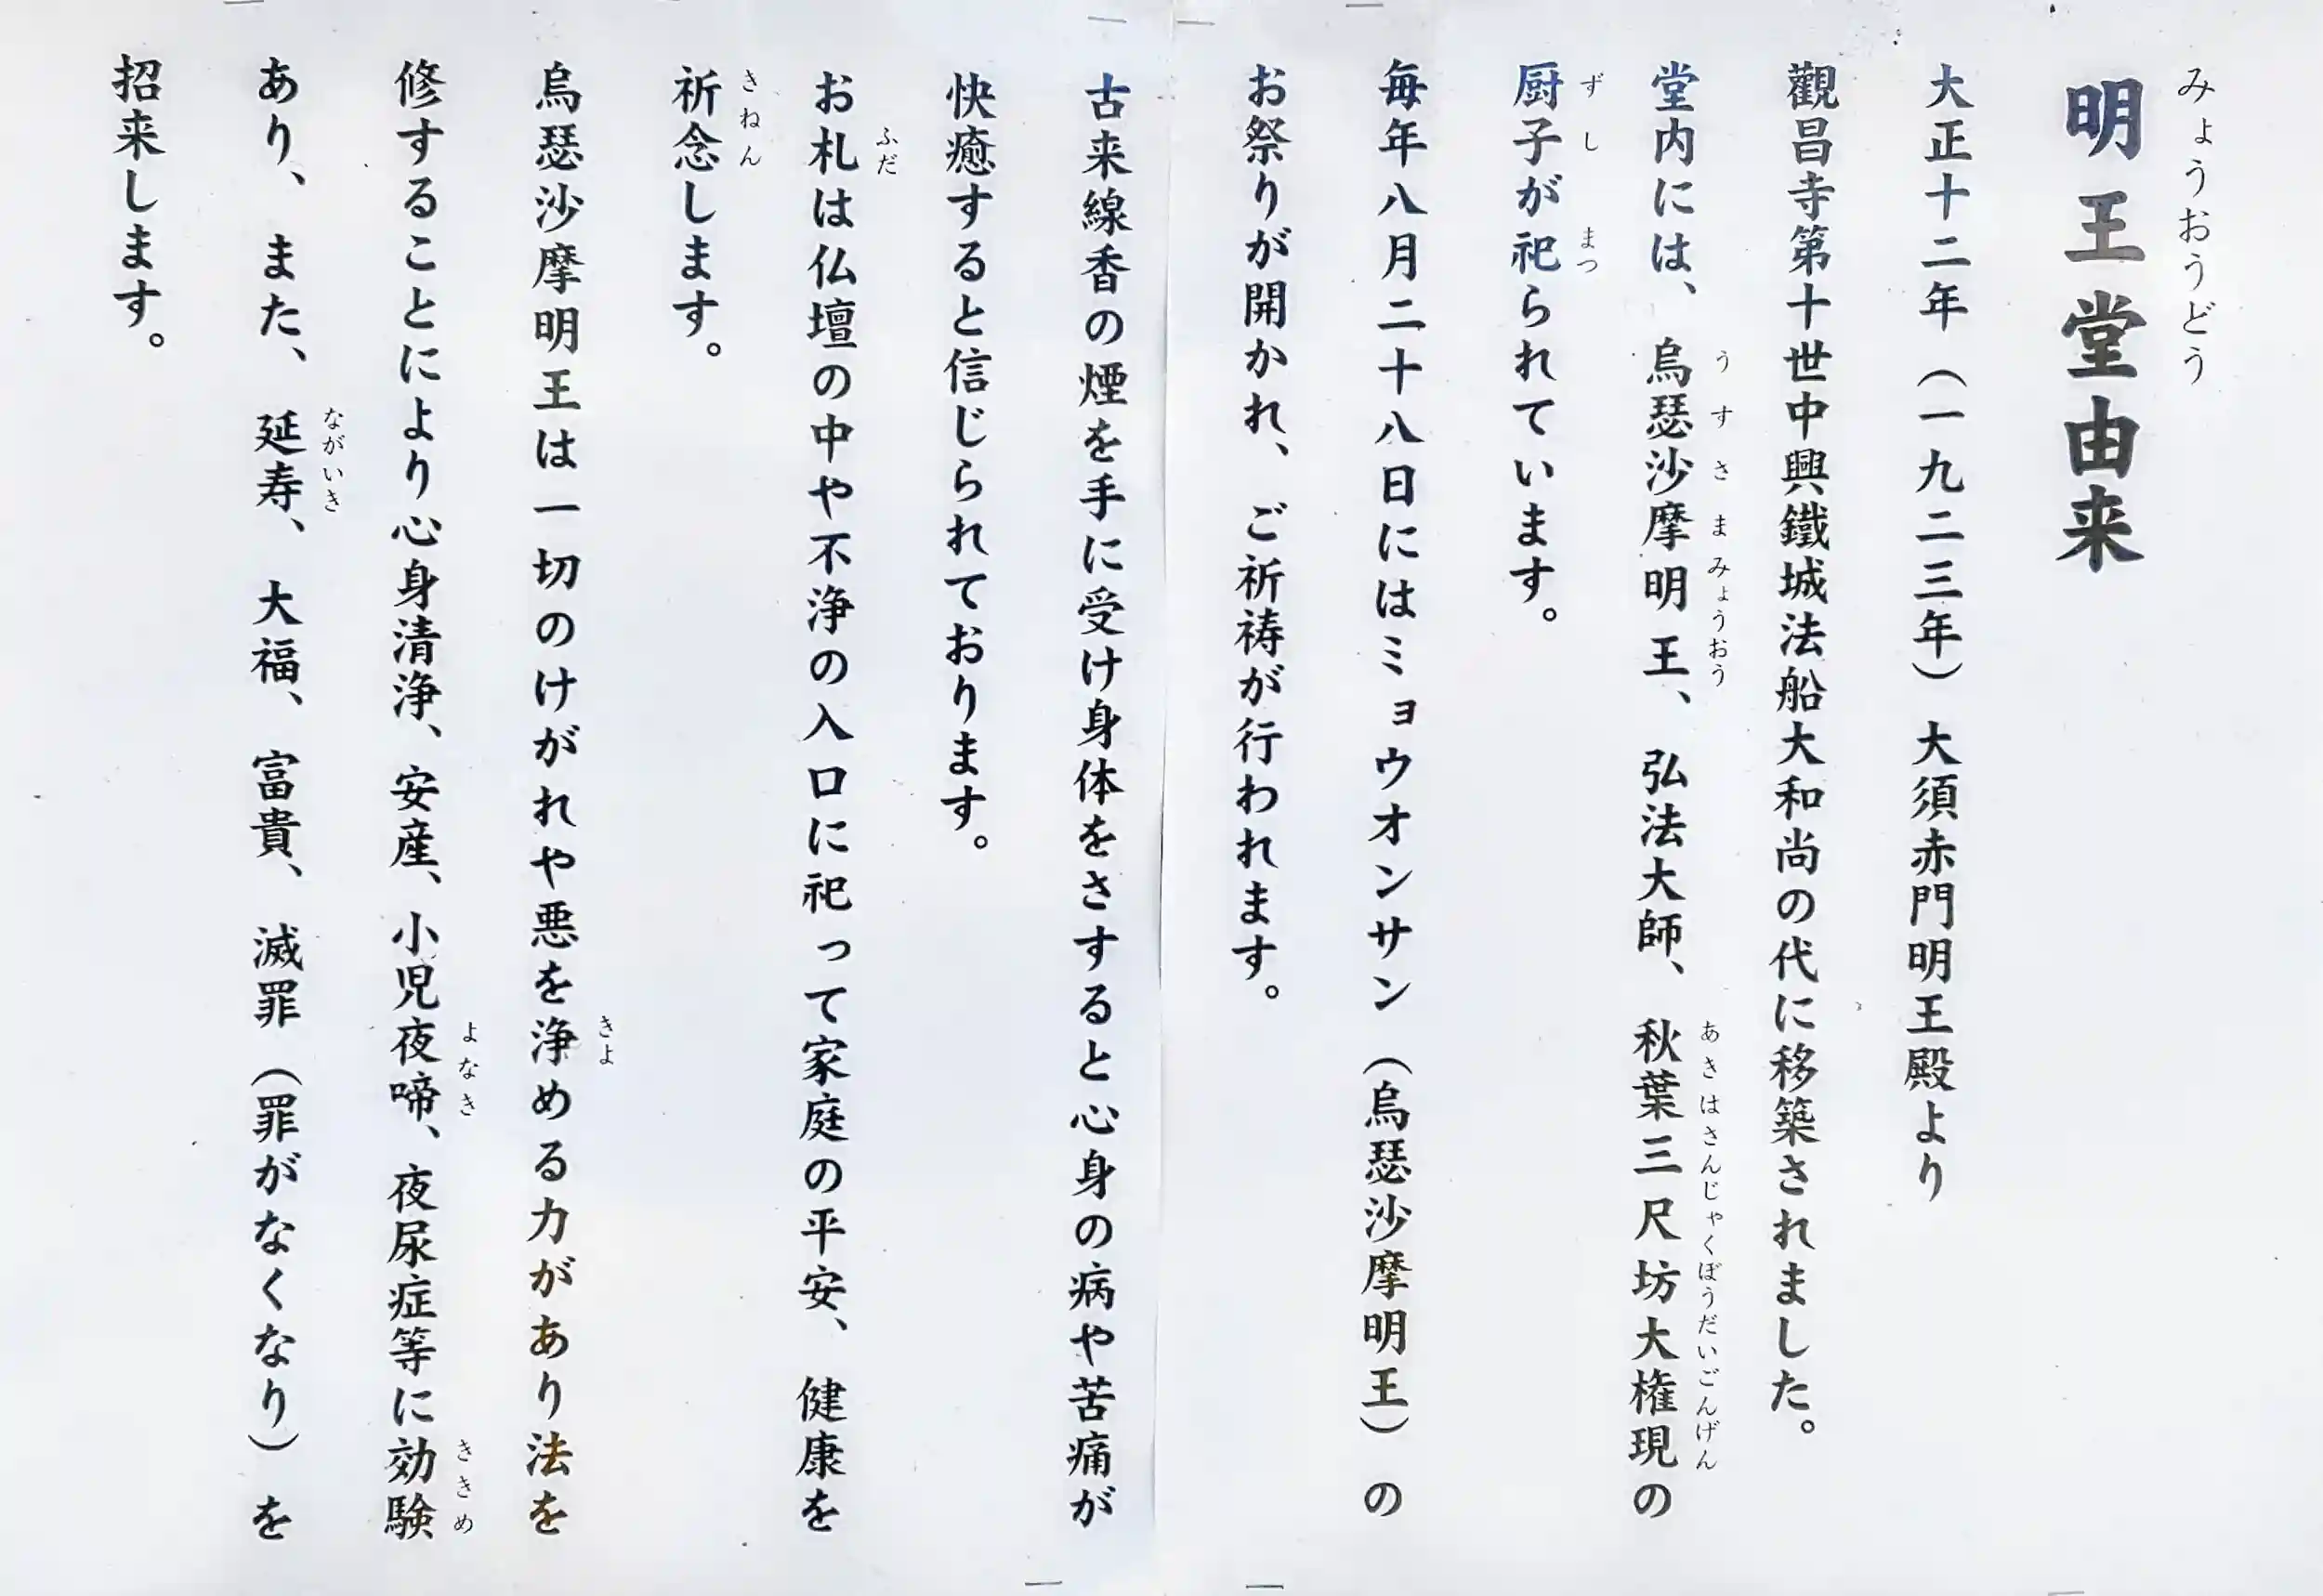 みょうおうどう
明王堂由来
大正十二年（一九二三年）大須赤門明王殿より
觀昌寺第十世中興鐵城法船大和尚の代に移築されました。
うすさまみょうおう あきはさんじゃくぼうだいごんげん
堂内には、烏瑟沙摩明王、弘法大師、秋葉三尺坊大権現の
ずし まつ
厨子が祀られています。
毎年八月二十八日にはミョウオンサン（烏瑟沙摩明王）の
お祭りが開かれ、ご祈祷が行われます。
古来線香の煙を手に受け身体をさすると心身の病や苦痛が
快癒すると信じられております。
ふだ
お札は仏壇の中や不浄の入口に祀って家庭の平安、健康を
きねん
祈念します。
きよ
烏瑟沙摩明王は一切のけがれや悪を浄める力があり法を
よなき ききめ
修することにより心身清浄、安産、小児夜啼、夜尿症等に効験
ながいき
あり、また、延寿、大福、富貴、滅罪（罪がなくなり）を
招来します。